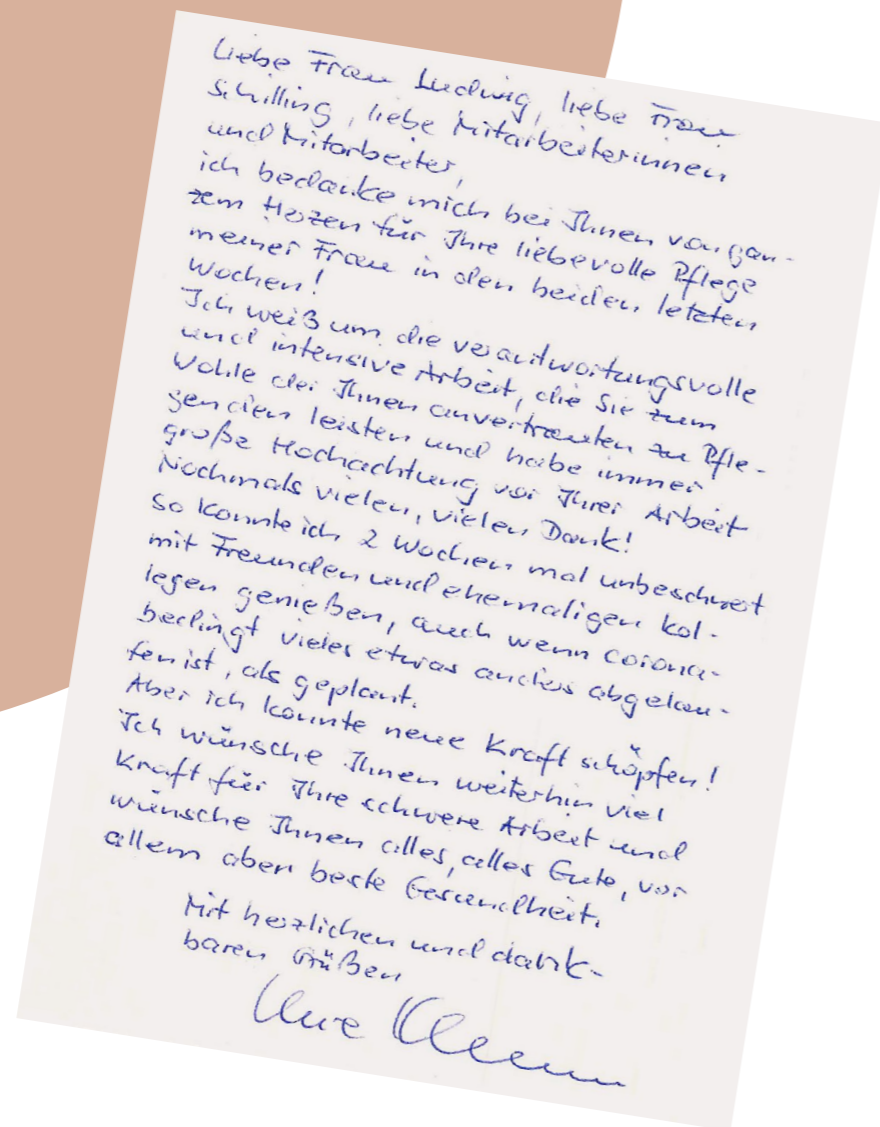 Liebe Frau Ludwig, liebe Frau
Schilling, liebe Mitarbeiterinnen
und Mitarbeiter,
ich bedanke mich bei Ihnen von gan-
zem Herzen für Ihre liebevolle Pflege
meiner Frau in den beiden letzten
Wochen!
Ich weiß um die verantwortungsvolle
und intensive Arbeit, die Sie zum
Wohle der Ihnen anvertrauten zu Pfle-
genden leisten und habe immer
große Hochachtung vor Ihrer Arbeit
Nochmals vielen, vielen Dank!
So konnte ich 2 Wochen mal unbeschwert
mit Freunden und ehemaligen Kol-
legen genießen, auch wenn corona-
bedingt vieles etwas anders abgelau-
fen ist, als geplant.
Aber ich konnte neue Kraft schöpfen!
Ich wünsche Ihnen weiterhin viel
Kraft für Ihre schwere Arbeit und
wünsche Ihnen alles, alles Gute, vor
allem aber beste Gesundheit.
Mit herzlichen und dank-
baren Grüßen
Uwe